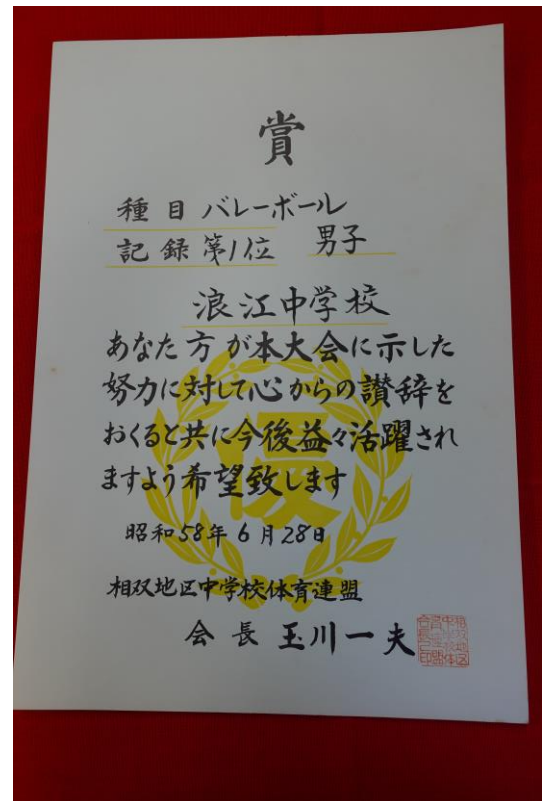 賞
種目 バレーボール
記録 第1位 男子
浪江中学校
あなた方が本大会に示した
努力に対して心からの讃辞を
おくると共に今後益々活躍され
ますよう希望致します
優
昭和58年6月28日
相双地区中学校体育連盟
会長 玉川一夫